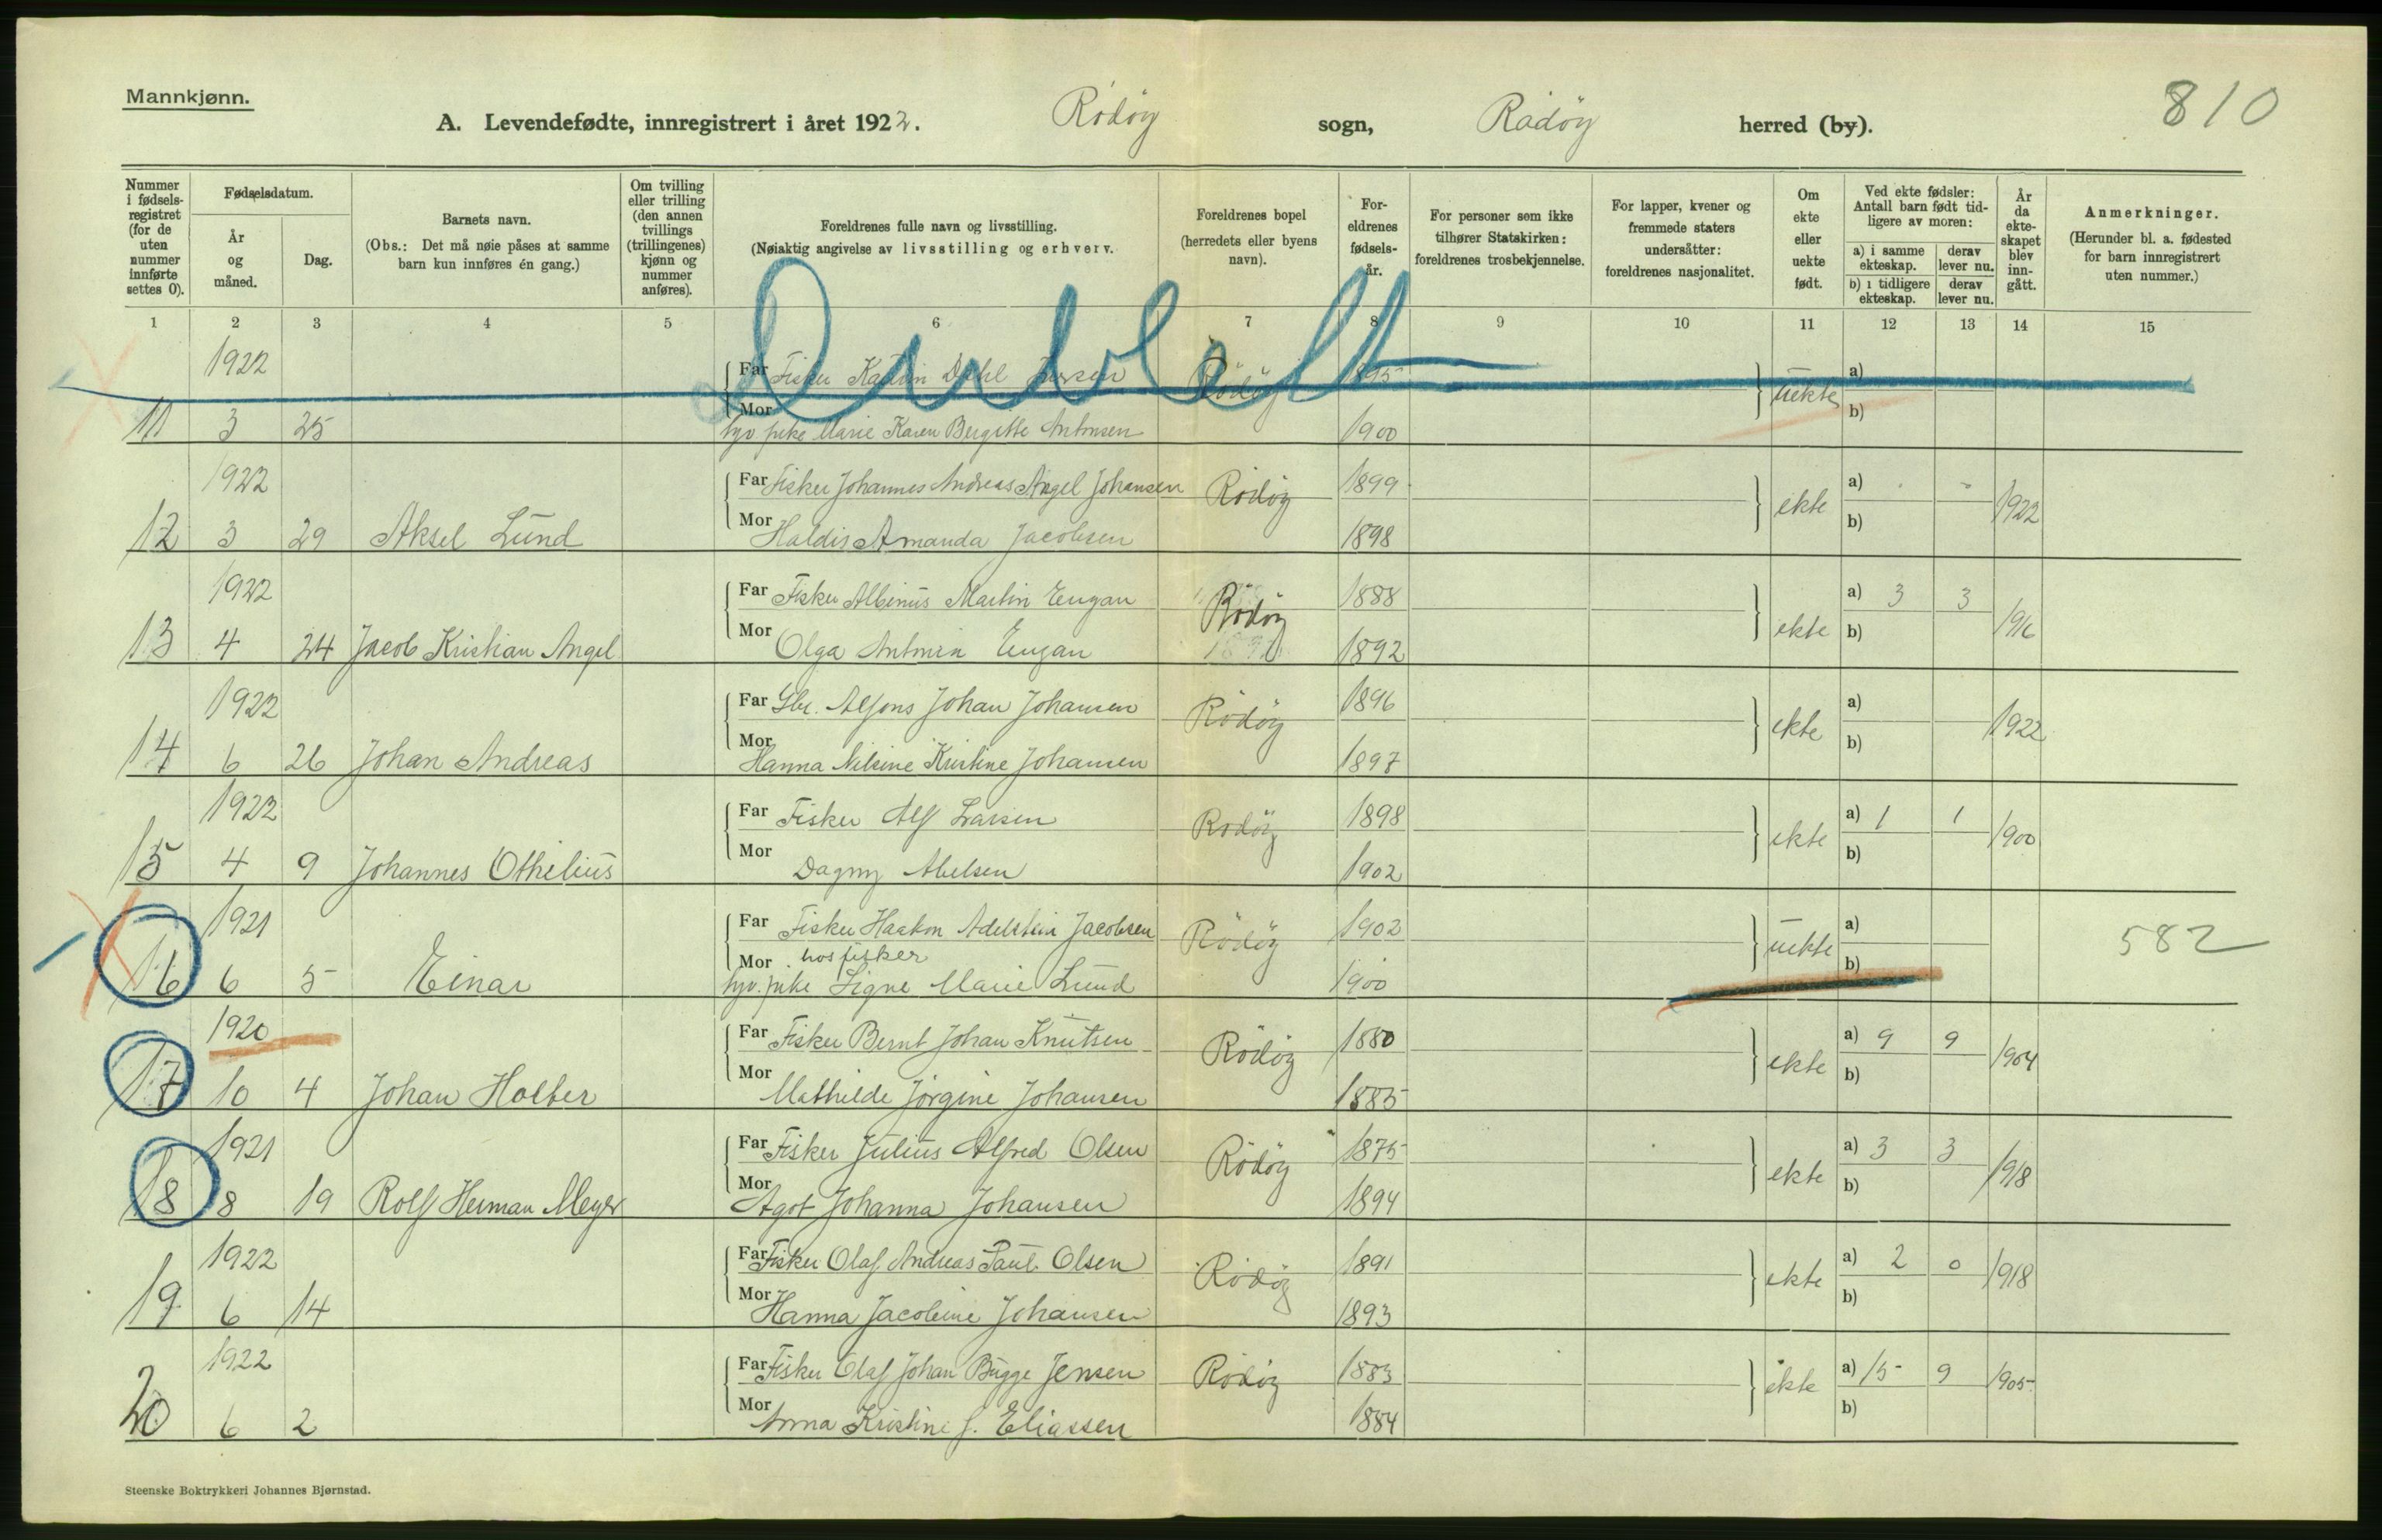 Mannkjønn.
810
A. Levendefødte, innregistrert i året 1922. Rödöy sogn, Rödöy herred (by).
Nummer i fødsels-registret (for de uten nummer innførte settes 0).
Fødselsdatum.
År og måned.
Dag.
Barnets navn.
(Obs.: Det må nøie påses at samme barn kun innføres én gang.)
Om tvilling eller trilling (den annen tvillings (trillingenes) kjønn og nummer anføres).
Foreldrenes fulle navn og livsstilling.
(Nøiaktig angivelse av livsstilling og erhverv.
Foreldrenes bopel (herredets eller byens navn).
For-eldrenes fødsels-år.
For personer som ikke tilhører Statskirken: foreldrenes trosbekjennelse.
For lapper, kvener og fremmede staters undersåtter: foreldrenes nasjonalitet.
Om ekte eller uekte født.
Ved ekte fødsler: Antall barn født tid-ligere av moren:
a) i samme ekteskap.
derav lever nu.
b) i tidligere ekteskap.
derav lever nu.
År da ekte-skapet blev inn-gått.
Anmerkninger.
(Herunder bl. a. fødested for barn innregistrert uten nummer.)
1 2 3 4 5 6 7 8 9 10 11 12 13 14 15
1922 Far Fisker Dahl Rödöy 1895 uekte a)
11 3 25 Mor Marie Karen Bergitte Antonsen 1900 b)
1922 Far Fisker Johannes Andreas Angel Johansen Rödöy 1899 ekte a) - - 1922
12 3 29 Aksel Lund Mor Haldis Amanda Jacobsen 1898 b)
1922 Far Fisker Albinus Martin Engan Rödöy 1888 ekte a) 3 3 1916
13 4 24 Jacob Kristian Angel Mor Olga Antmin Engan 1892 b)
1922 Far Gbr. Alfons Johan Johansen Rödöy 1896 ekte a) 1922
14 6 26 Johan Andreas Mor Hanna Nilsine Kristine Johansen 1897 b)
1922 Far Fisker Alf Larsen Rödöy 1898 ekte a) 1 1 1900
15 4 9 Johannes Othelius Mor Dagny Abelsen 1902 b)
1921 Far Fisker Haakon Adelstein Jacobsen Rödöy 1902 uekte a) 582
hos fisker
16 6 5 Einar Mor tjv. pike Signe Marie Lund 1900 b)
1920 Far Fisker Bernt Johan Knutsen Rödöy 1880 ekte a) 9 9 1904
17 10 4 Johan Holter Mor Mathilde Jörgine Johansen 1885 b)
1921 Far Fisker Julius Alfred Olsen Rödöy 1875 ekte a) 3 3 1918
18 8 19 Rolf Herman Meyer Mor Agot Johanna Johansen 1894 b)
1922 Far Fisker Olaf Andreas Paul Olsen Rödöy 1891 ekte a) 2 0 1918
19 6 14 Mor Hanna Jacobine Johansen 1893 b)
1922 Far Fisker Olaf Johan Bugge Jensen Rödöy 1883 ekte a) 15 9 1905
20 6 2 Mor Anna Kristine J. Eliassen 1884 b)
Steenske Boktrykkeri Johannes Bjørnstad.